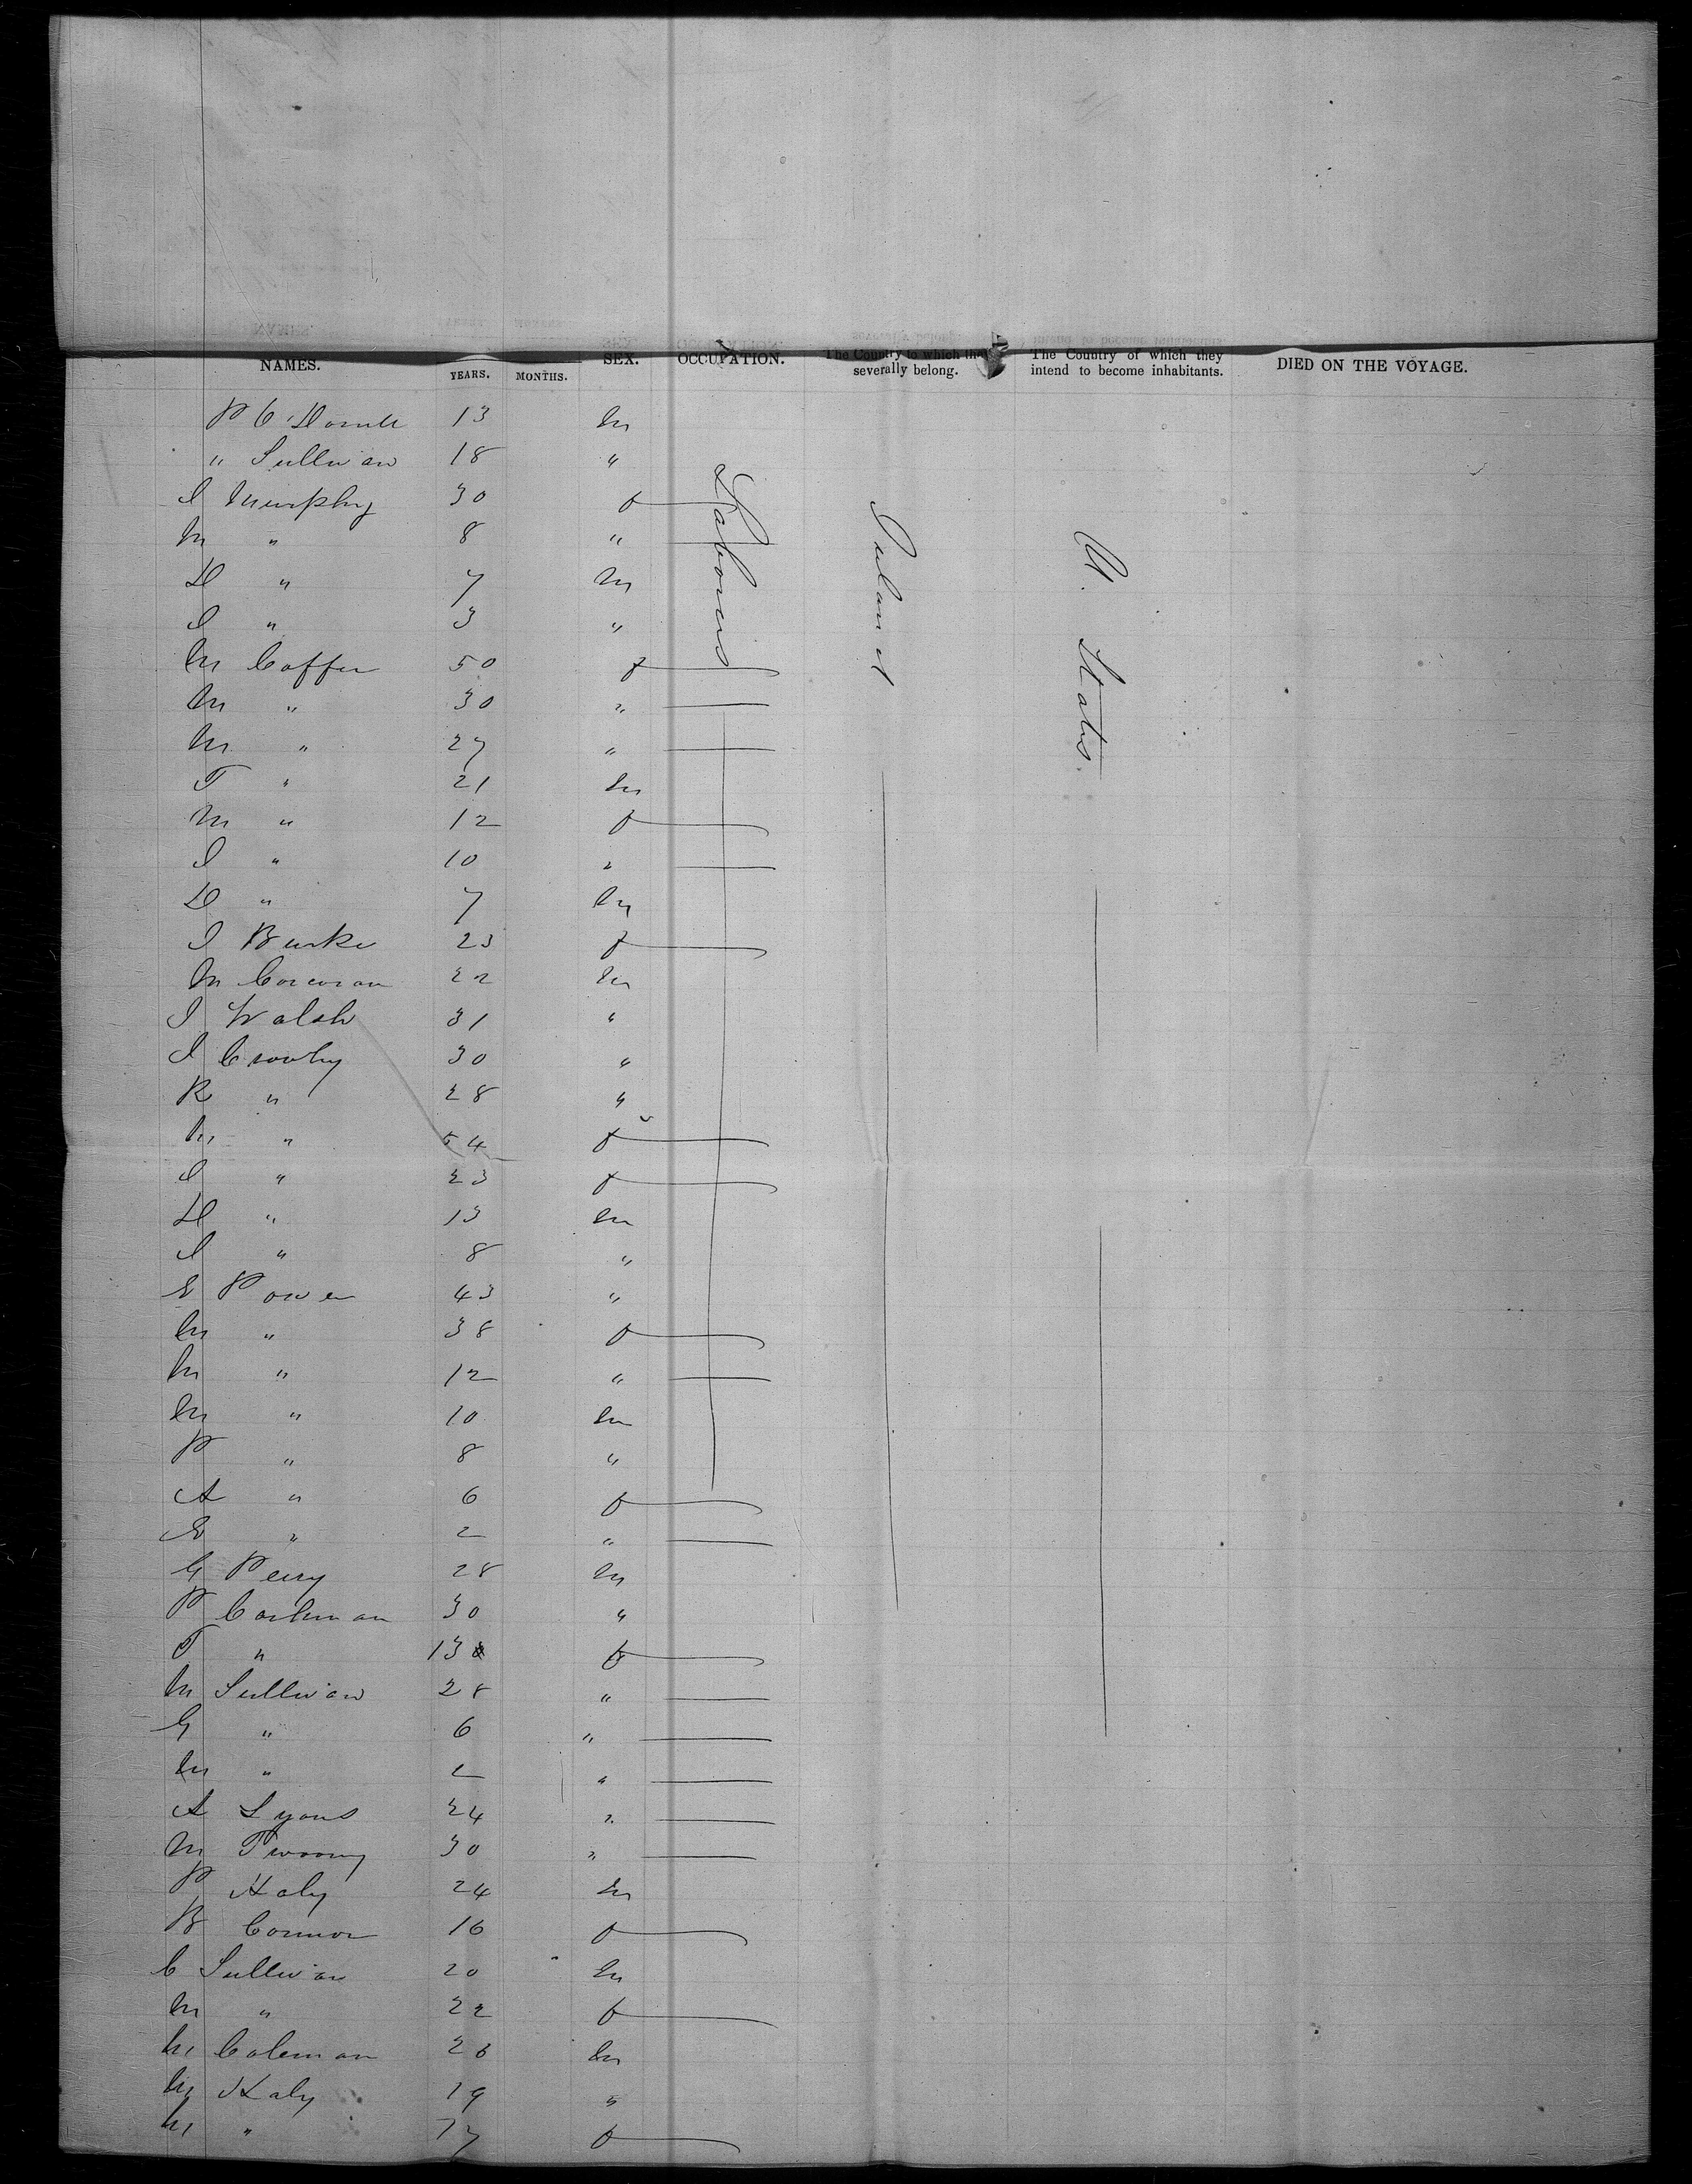 NAMES. YEARS. MONTHS. SEX. OCCUPATION. The Country to which they severally belong. The Country of which they intend to become inhabitants. DIED ON THE VOYAGE.
P O'Donnell 13 m Labourers Ireland U. States
" Sullivan 18 "
J Murphy 30 f
M " 8 "
D " 7 m
J " 3 "
M Coffee 50 f
M " 30 "
M " 27 "
T " 21 m
M " 12 f
J " 10 "
D " 7 m
J Burke 23 f
M Corcoran 22 m
J Walsh 31 "
J Crowley 30 "
R " 28 "
M " 54 f
J " 23 f
D " 13 m
J " 8 "
E Power 43 "
M " 38 f
M " 12 "
M " 10 m
P " 8 "
A " 6 f
E " 2 "
G Perry 28 m
P Cashman 30 "
T " 13 f
M Sullivan 28 "
G " 6 "
M " 2 "
A Lyons 24 "
M Twoomy 30 "
P Haly 24 m
B Connor 16 f
C Sullivan 20 m
M " 22 f
M Coleman 26 m
M Haly 19 "
M " 17 f